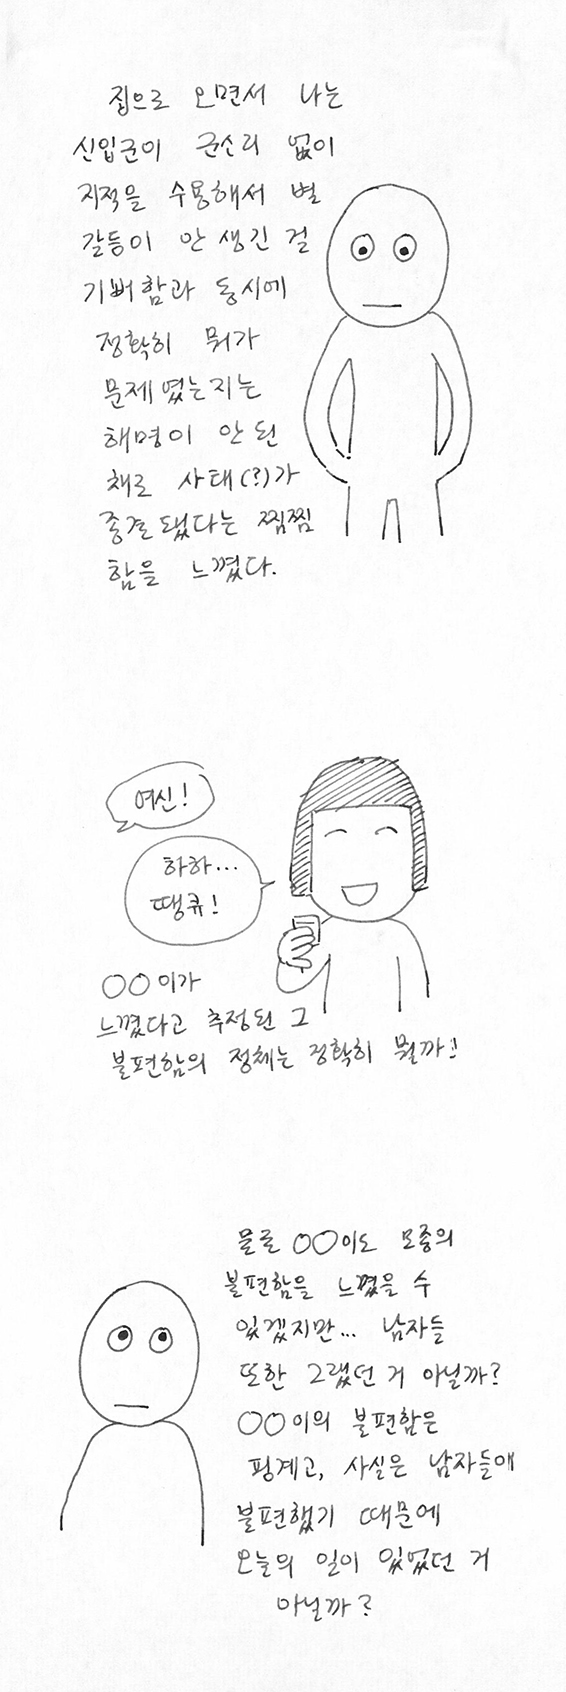 집으로 오면서 나는
신입군이 군소리 없이
지적을 수용해서 별
갈등이 안 생긴 걸
기뻐함과 동시에
정확히 뭐가
문제였는지는
해명이 안 된
채로 사태(?)가
종결됐다는 찜찜
함을 느꼈다.
여신!
하하...
땡큐!
○○이가
느꼈다고 추정된 그
불편함의 정체는 정확히 뭘까?
물론 ○○이도 모종의
불편함을 느꼈을 수
있겠지만... 남자들
또한 그랬던 거 아닐까?
○○이의 불편함은
핑계고, 사실은 남자들애
불편했기 때문에
오늘의 일이 있었던 거
아닐까?